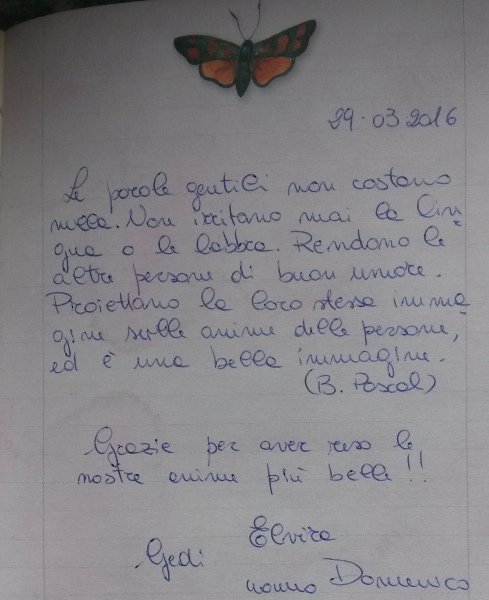 29.03.2016
Le parole gentili non costano
nulla. Non irritano mai la lin=
gua o le labbra. Rendono le
altre persone di buon umore.
Proiettano la loro stessa imma=
gine sulle anime delle persone,
ed è una bella immagine.
(B. Pascal)
Grazie per aver reso le
nostre anime più belle!!
Elvira
Gedi
nonno Domenico